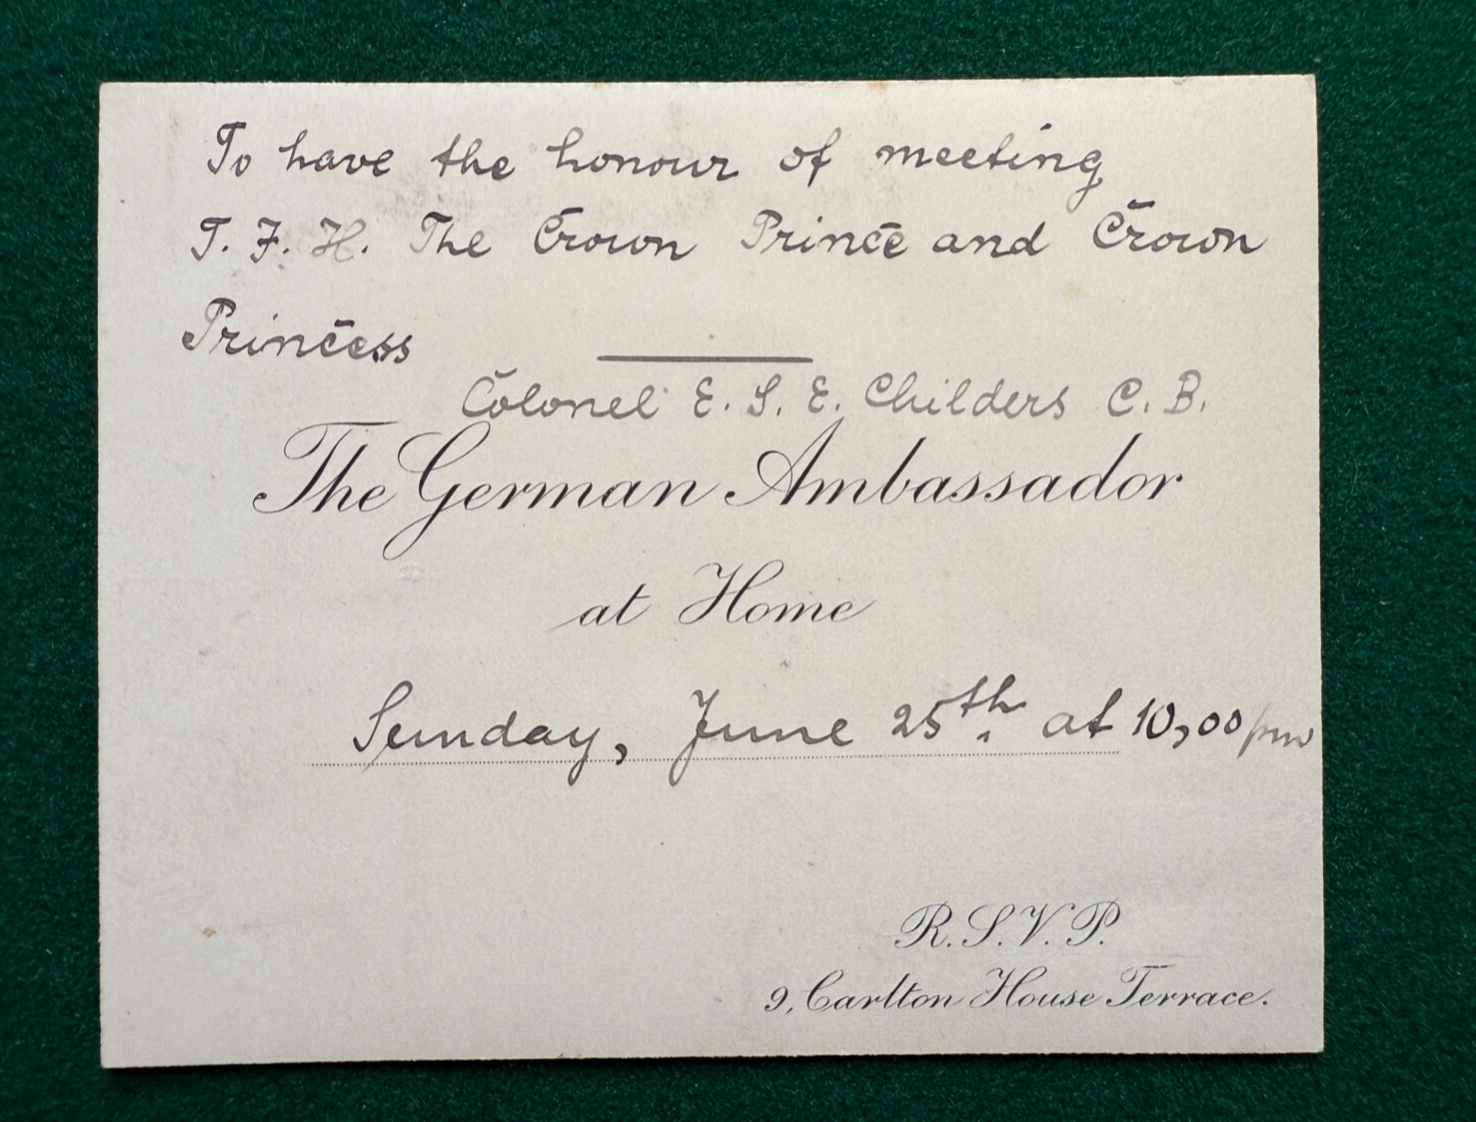 To have the honour of meeting
T. F. H. The Crown Prince and Crown
Princess
Colonel E. S. E. Childers C. B.
The German Ambassador
at Home
Sunday, June 25th. at 10,00 pm
R.S.V.P.
9, Carlton House Terrace.